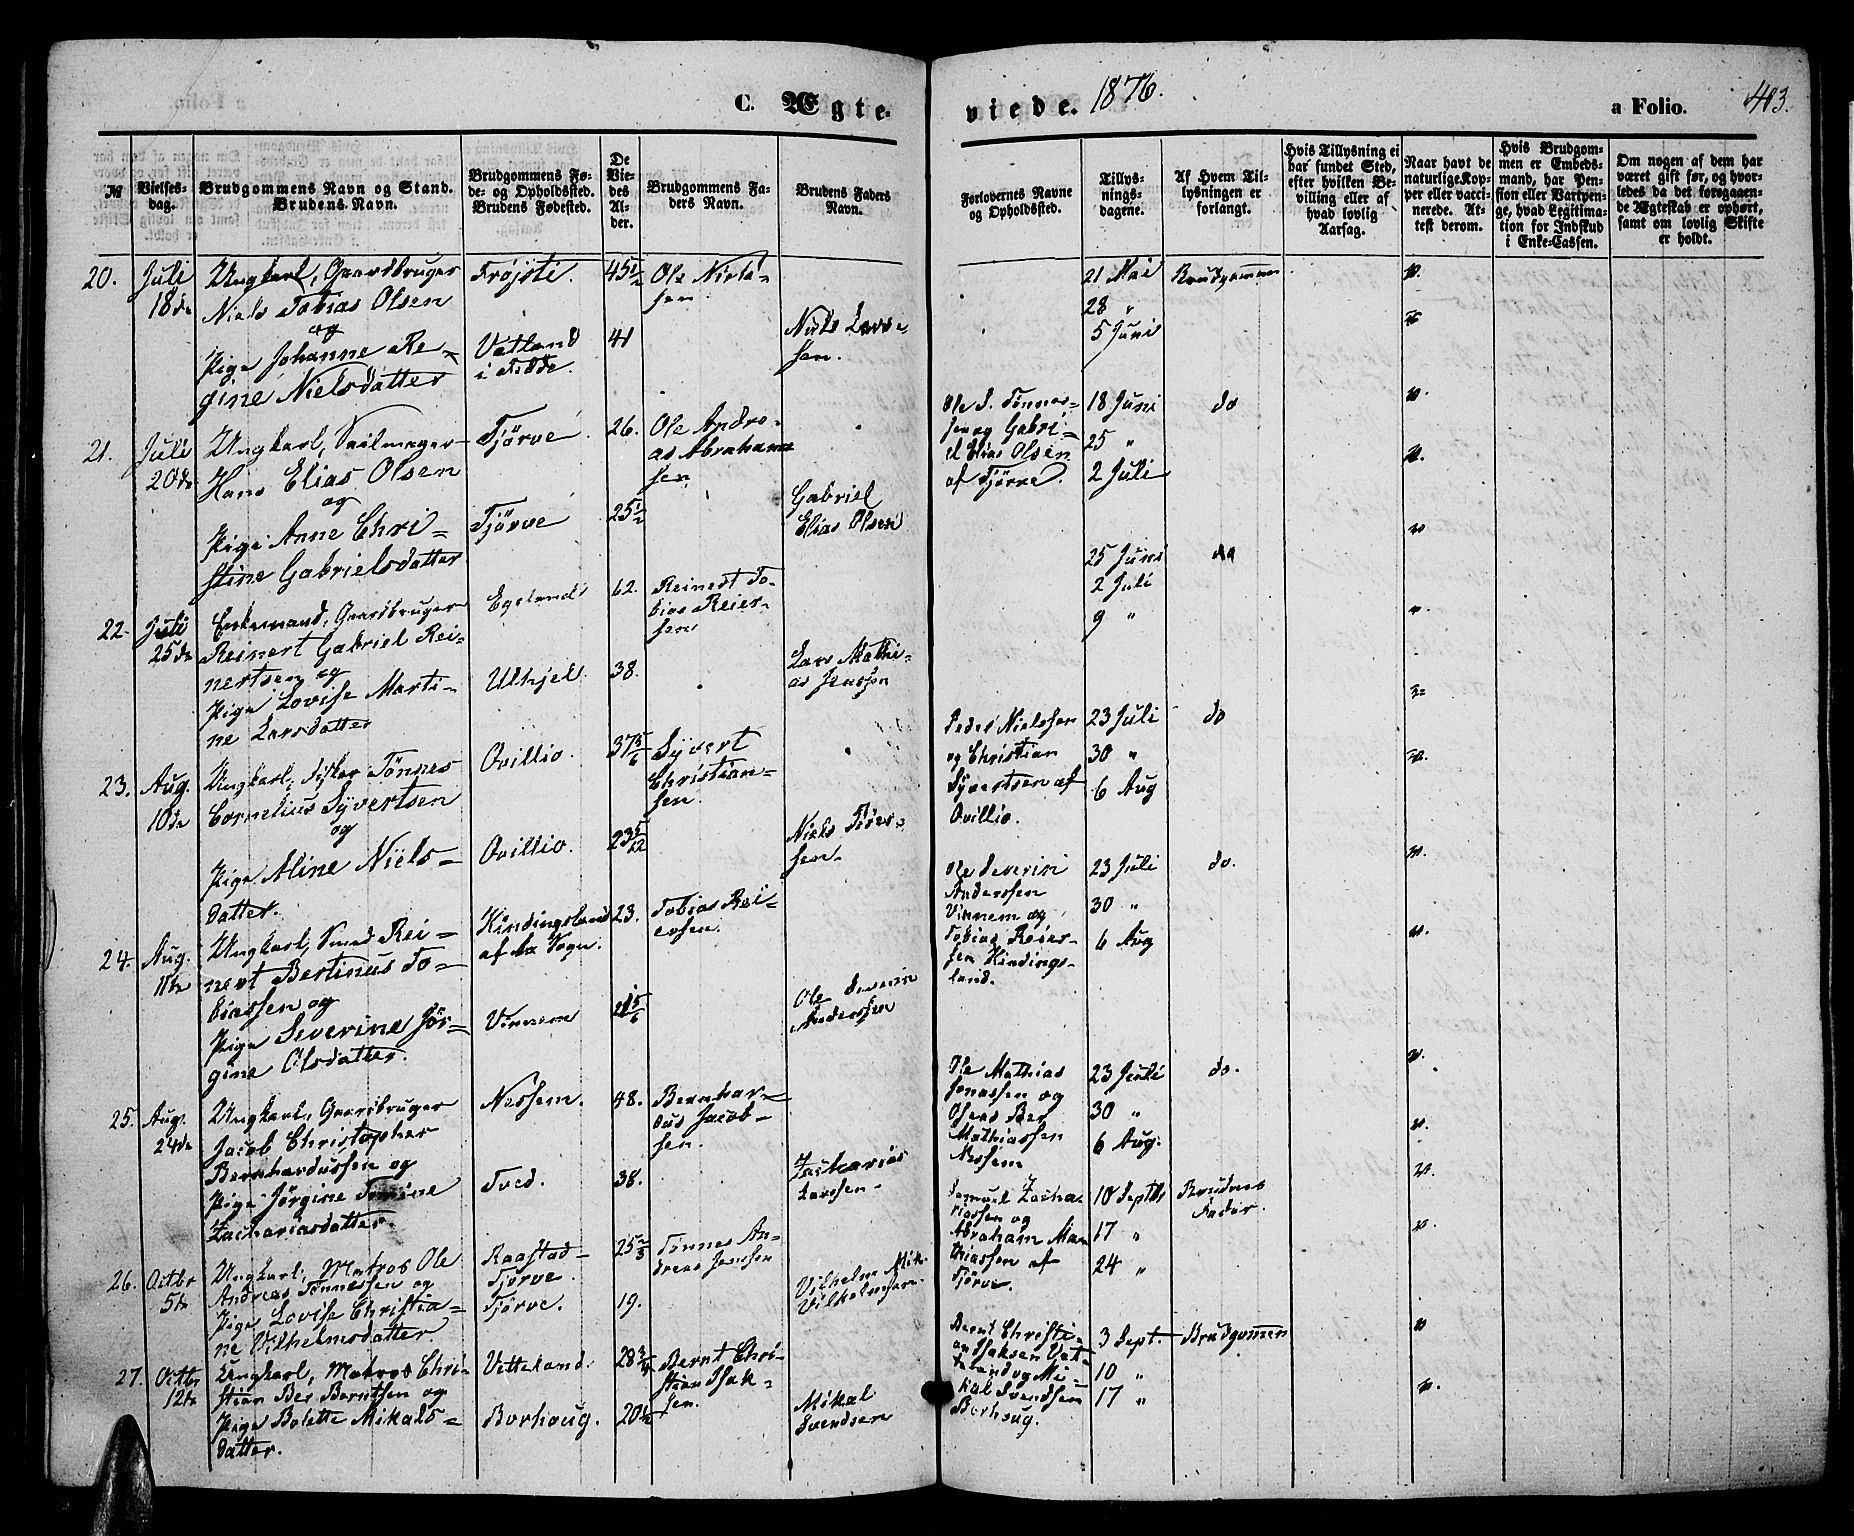 C. Ægteviede. 1876.
a Folio. 403.
№
Vielses-
dag.
Brudgommens Navn og Stand.
Brudens Navn.
Brudgommens Fø-
de- og Opholdssted.
Brudens Fødested.
De
Vie-
des
Al-
der.
Brudgommens Fa-
ders Navn.
Brudens Faders
Navn.
Forlovernes Navne
og Opholdssted.
Tillys-
nings-
dagene.
Af Hvem Til-
lysningen er
forlangt.
Hvis Tillysning ei
har fundet Sted,
efter hvilken Be-
villing eller af
hvad lovlig
Aarsag.
Naar havt de
naturlige Kop-
per eller vacci-
nerede. At-
test derom.
Hvis Brudgom-
men er Embeds-
mand, har Pen-
sion eller Vartpen-
ge, hvad Legitima-
tion for Indskud
i Enke-Cassen.
Om nogen af dem har
været gift før, og hvor-
ledes da det foregaaen-
de Ægteskab er ophørt,
samt om lovlig Skifte
er holdt.
20. Juli
18de
Ungkarl, Gaardbruger
Niels Tobias Olsen
og
Pige Johanne Re-
gine Nielsdatter
Trøjsti
Vatland
i Fedde.
45 1/2
41
Ole Niels-
sen.
Niels Lars-
sen.
21 Mai
28 "
5 Juni
Brudgommen
21. Juli
20de
Ungkarl, Seilmager
Hans Elias Olsen
og
Pige Anne Chri-
stine Gabrielsdatter
Tjörve
Tjörve
26.
25 1/2
Ole Andre-
as Abraham-
sen
Gabriel
Elias Olsen
Ole S. Tönnes-
sen og Gabri-
el Elias Olsen
af Tjörve.
18 Juni
25 "
2 Juli
do
22. Juli
25de
Enkemand, Gaardbruger
Reinert Gabriel Rei-
nertsen og
Pige Lovise Marti-
ne Larsdatter
Egeland
Ulhjel.
62.
38.
Reinert To-
bias Reier-
sen
Lars Mathi-
as Jenssen
25 Juni
2 Juli
9 "
do
23. Aug.
10de
Ungkarl, Fisker Tönnes
Cornelius Syvertsen
og
Pige Aline Niels-
datter.
Ovillio.
Ovillio.
37 5/6
23 5/12
Syvert
Christian-
sen.
Peder Nielssen
og Christian
Syvertsen af
Ovillio.
23 Juli
30 "
6 Aug
do
24. Aug.
11te
Ungkarl, Smed Rei-
nert Bertinus To-
biassen og
Pige Severine Jör-
gine Olsdatter.
Kindingsland
Vinnem
23.
21 5/6
Tobias Rei-
ersen.
Ole Severin
Anderssen
Ole Severin
Anderssen
Vinnem og
Tobias Reier-
sen Kindings-
land.
23 Juli
30 "
6 Aug
do.
25. Aug.
24de
Ungkarl, Gaardbruger
Jacob Christopher
Bernhardussen og
Pige Jörgine Tomine
Zachariasdatter.
Nessem.
Tved.
48.
38.
Bernhar-
dus Jacob-
sen.
Zacharias
Larssen.
Ole Mathias
Jonassen og
Mathiassen
Nessem
23 Juli
30 "
6 Aug.
do.
26. Octbr
5te
Ungkarl, Matros Ole
Andreas Tönnessen og
Pige Lovise Christia-
ne Vilhelmsdatter.
Raastad-
Tjörve.
Tjörve.
25 2/3
19.
Tönnes An-
dreas Jenssen
Vilhelm Mik.
Vilhelmsen.
Samuel Zacha-
riassen og
Abraham Mat-
thiassen af
Tjörve.
10 Septbr
17 "
24 "
Brudens
Fader.
27. Octbr
12te
Ungkarl, Matros Chri-
stian Ber Berntsen og
Pige Bolette Mikals-
datter.
Vetteland.
Borhoug.
28 3/4
20 1/2
Bernt Chri-
stian Isak-
sen.
Mikal
Svendsen
Bernt Christi-
an Isaksen Vet-
teland og Mi-
kal Svendsen
Borhoug.
3 Sept.
10 "
17 "
Brudgommen